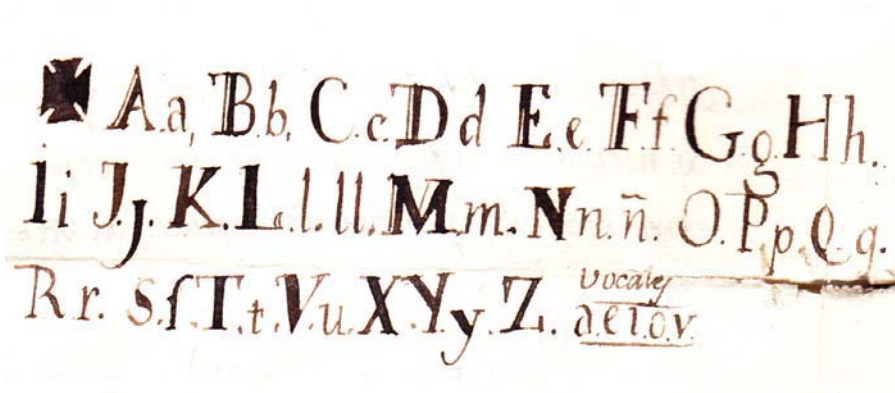 ✠ A.a, B.b, C.c. D d E.e. F.f G g. H h.
I i J.j. K. L.l.ll. M.m. N n.ñ. O. P.p. Q.q.
R r. S.ſ. T.t. V.u. X.Y.y. Z. Vocales
a.e.i.o.v.